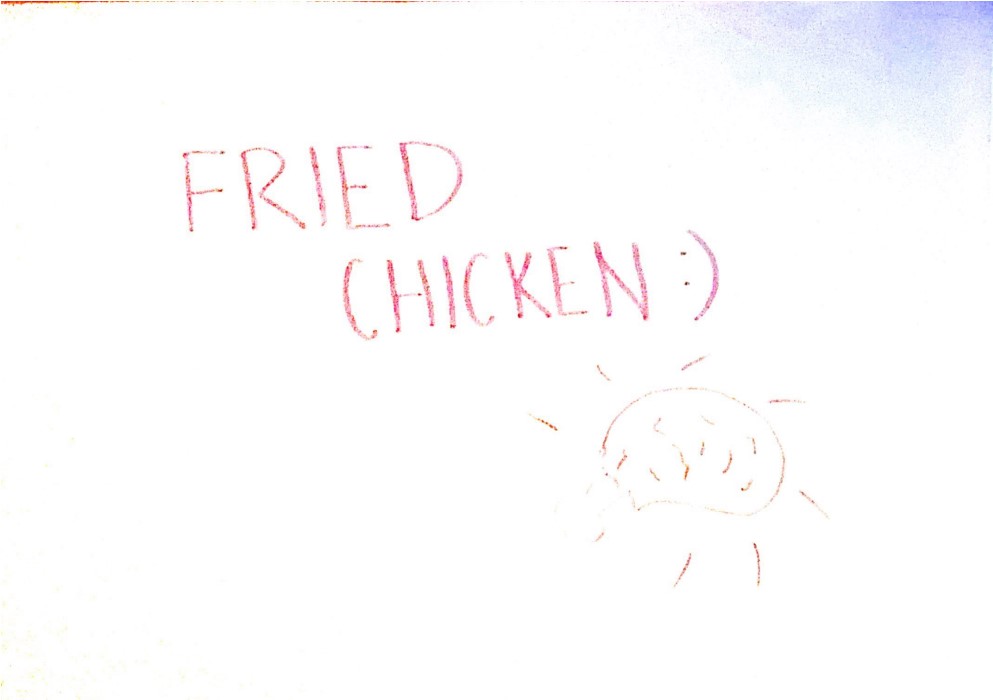 FRIED
CHICKEN :)